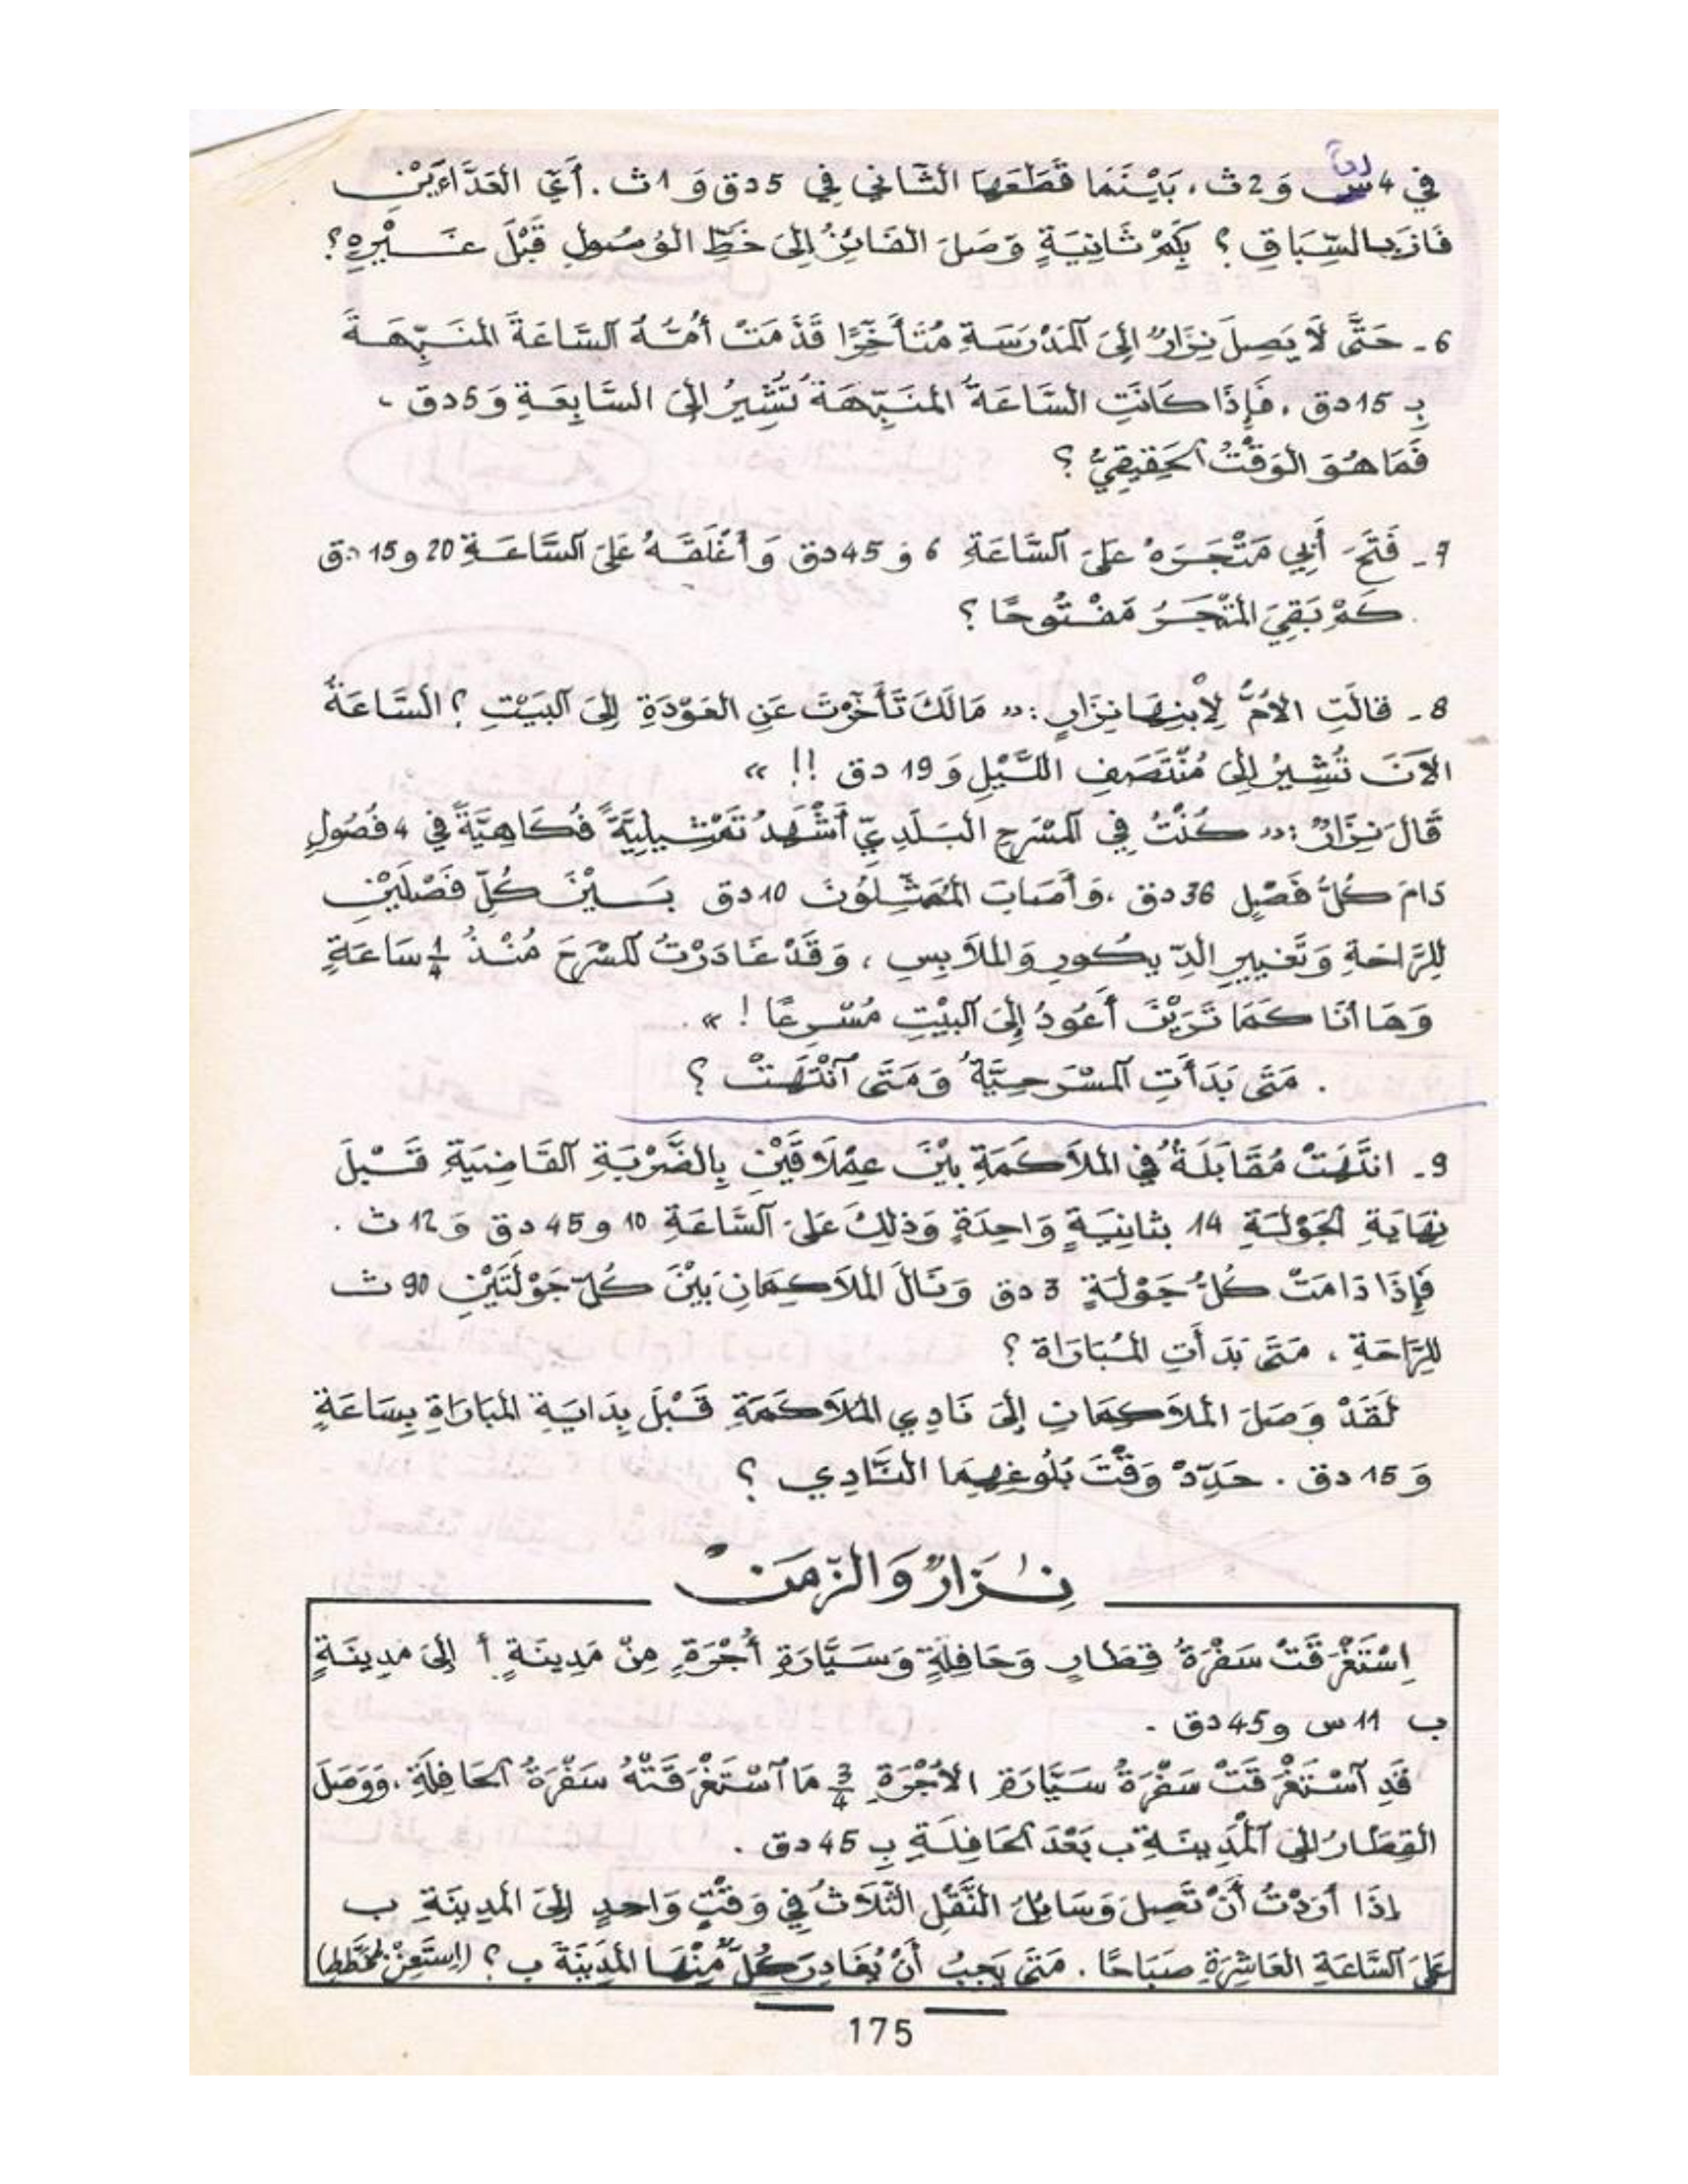 في 4 دق وَ 2 ث، بَيْنَمَا قَطَعَهَا الثَّانِي فِي 5 دق وَ 1 ث. أَيّ العَدَّاءَيْنِ
فَازَ بِالسِّبَاقِ ؟ بِكَمْ ثَانِيَةٍ وَصَلَ الفَائِزُ إِلَىَ خَطِّ الوُصُولِ قَبْلَ غَــيْرِهِ ؟
6 ـ حَتَّى لَا يَصِلَ نِزَارٌ إِلَىَ المَدْرَسَةِ مُتَأَخِّرًا قَدَّمَتْ أُمُّهُ السَّاعَةَ المُنَبِّهَةَ
بِـ 15 دق ، فَإِذَا كَانَتِ السَّاعَةُ المُنَبِّهَةُ تُشِيرُ إِلَىَ السَّابِعَةِ وَ 5 دق ،
فَمَا هُوَ الوَقْتُ الحَقِيقِيُّ ؟
7 ـ فَتَحَ أَبِي مَتْجَرَهُ عَلَىَ السَّاعَةِ 6 و 45 دق وَ أَغْلَقَهُ عَلَىَ السَّاعَةِ 20 و 15 دق
. كَمْ بَقِيَ المَتْجَرُ مَفْتُوحًا ؟
8 ـ قَالَتِ الأُمُّ لِاْبنِهَا نِزَارٍ : « مَالَكَ تَأَخَّرْتَ عَنِ العَوْدَةِ إِلَىَ البَيْتِ ؟ السَّاعَةُ
الآنَ تُشِيرُ إِلَىَ مُنْتَصَفِ اللَّيْلِ وَ 19 دق !! »
قَالَ نِزَارٌ : « كُنْتُ فِي المَسْرَحِ البَلَدِيّ أَشْهَدُ تَمْثِيلِيَّةً فُكَاهِيَّةً فِي 4 فُصُولٍ
دَامَ كُلُّ فَصْلٍ 36 دق ، وَأَصَابَ المُمَثِّلُونَ 10 دق بَــيْنَ كُلِّ فَصْلَيْنِ
لِلرَّاحَةِ وَتَغْيِيرِ الدِّيكُورِ وَالمَلاَبِسِ ، وَقَدْ غَادَرْتُ المَسْرَحَ مُنْذُ 1/4 سَاعَةٍ
وَهَا أَنَا كَمَا تَرَيْنَ أَعُودُ إِلَىَ البَيْتِ مُسْرِعًا ! » .
. مَتَى بَدَأَتِ المَسْرَحِيَّةُ وَمَتَى انْتَهَتْ ؟
9 ـ انتَهَتْ مُقَابَلَةٌ فِي المُلاَكَمَةِ بَيْنَ عِمْلاَقَيْنِ بِالضَّرْبَةِ القَاضِيَةِ قَــبْلَ
نِهَايَةِ الجَوْلَةِ 14 بثانِيَةٍ وَاحِدَةٍ وَذلِكَ عَلَىَ السَّاعَةِ 10 و 45 دق وَ 12 ث .
فَإِذَا دَامَتْ كُلُّ جَوْلَةٍ 3 دق وَنَالَ المُلاَكِمَانِ بَيْنَ كُلّ جَوْلَتَيْنِ 90 ث
لِلرَّاحَةِ ، مَتَى بَدَأَتِ المُبَارَاة ؟
لَقَدْ وَصَلَ المُلاَكِمَانِ إِلَىَ نَادِي المُلاَكَمَةِ قَــبْلَ بِدَايَةِ المُبَارَاةِ بِسَاعَةٍ
وَ 15 دق . حَدِّدْ وَقْتَ بُلُوغِهِمَا النَّادِي ؟
نِــزَارٌ وَالزَّمَنْ
اِسْتَغْرَقَتْ سَفْرَةُ قِطَارٍ وَحَافِلَةٍ وَسَيَّارَةِ أُجْرَةٍ مِنْ مَدِينَةٍ أ إِلَىَ مَدِينَةٍ
ب 11 س و 45 دق .
قَدِ اسْتَغْرَقَتْ سَفْرَةُ سَيَّارَةِ الأُجْرَةِ 3/4 مَا اسْتَغْرَقَتْهُ سَفْرَةُ الحَافِلَةِ ، وَوَصَلَ
القِطَارُ إِلَى المَدِينَةِ ب بَعْدَ الحَافِلَةِ بِـ 45 دق .
إِذَا أَرَدْتُ أَنْ تَصِلَ وَسَائِلُ النَّقْلِ الثَّلاَثُ فِي وَقْتٍ وَاحِدٍ إِلَىَ المَدِينَةِ ب
عَلَىَ السَّاعَةِ العَاشِرَةِ صَبَاحًا . مَتَى يَجِبُ أَنْ يُغَادِرَ كُلٌّ مِنْهَا المَدِينَةَ ب ؟ (اِسْتَعِنْ بمُخَطَّطٍ)
175